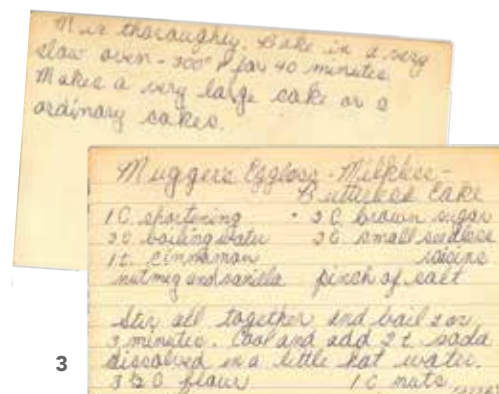 Mix thoroughly. Bake in a very
slow oven - 300° F for 40 minutes.
Makes a very large cake or 2
ordinary cakes.
Mugger's Eggless - Milkless -
Butterless Cake
1 C. shortening 2 C. brown sugar
2 C. boiling water 2 C. small seedless
1 t. cinnamon raisins
nutmeg and vanilla pinch of salt
Stir all together and boil 2 or
3 minutes. Cool and add 2 t. soda
dissolved in a little hot water.
3 1/2 C flour 1 C nuts
3